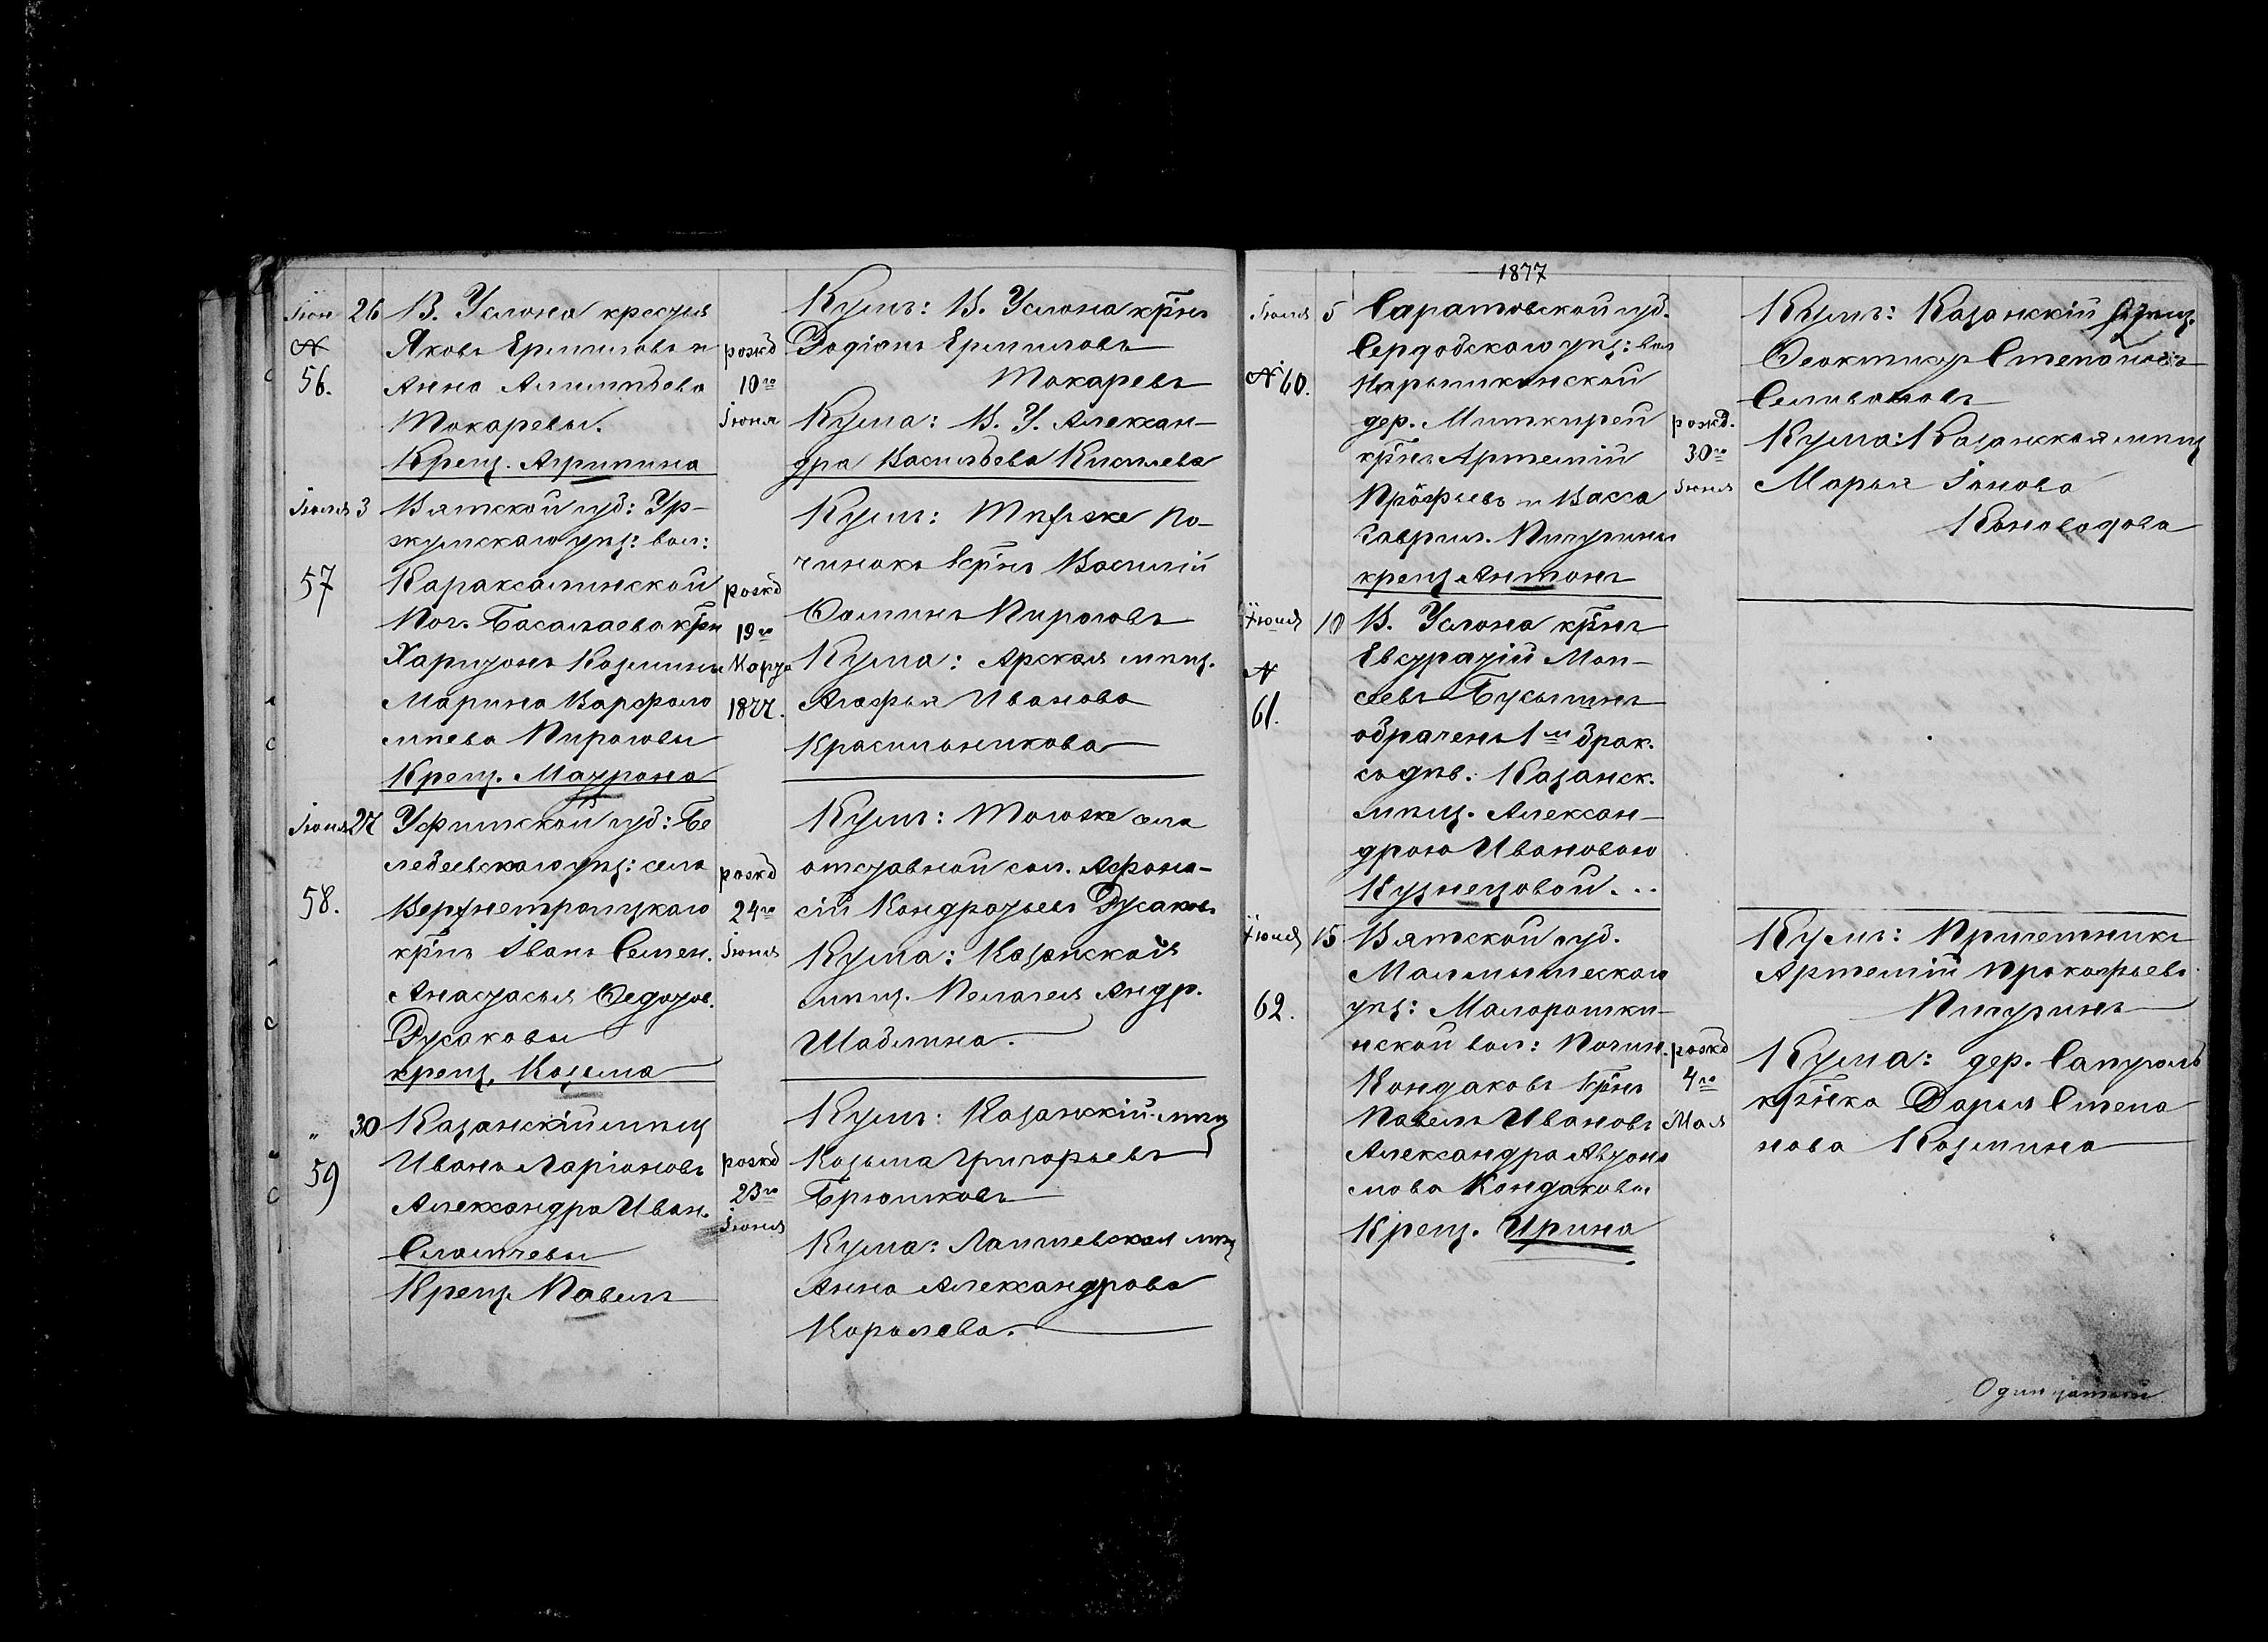 Іюн 26 В. Услона кресть
№ Яковъ Ермиловъ и
56. Анна Алимпьева
Токаревы.
Крещ. Агрипина
рожд
10го
Іюня
Кумъ: В. Услона кр̃нъ
Родіонъ Ермиловъ
Токаревъ
Кума: В. У. Алексан-
дра Васильева Киселева
Іюля 3 Вятской губ: Ур-
жумскаго уѣз: вол:
57 Караксалинской
Поч. Басалаева кр̃н
Харитонъ Козминъ и
Марина Варфоло
мѣева Пироговы
Крещ. Матрона
рожд
19го
Марта
1877.
Кумъ: Тѣхже По-
чинокъ кр̃нъ Василій
Ѳоминъ Пироговъ
Кума: Арская мѣщ.
Агафья Иванова
Красильникова
Іюня 27 Уфимской губ: Бе
лебеевскаго уѣз: села
58. Верхнетроицкаго
кр̃нъ Іванъ Семен.
Анастасья Ѳедотов.
Русаковы
крещ. Козьма
рожд
24го
Іюня
Кумъ: Тогоже села
отставной сол. Афона-
сій Кондратьевъ Русаковъ
Кума: Казанская
мѣщ. Пелагея Андр.
Шаблина.
" 30 Казанскій мѣщ
59 Иванъ Ларіоновъ
Александра Иван.
Крещ. Павелъ
рожд
23го
Іюня
Кумъ: Казанскій мѣщ
Козьма Григорьевъ
Брюшковъ
Кума: Лаишевская мѣщ
Анна Александрова
Королева.
1877
Іюля 5 Саратовской губ.
Сердобскаго уѣз: вол
№ 60. Нарышкинской
дер. Миткирей
кр̃нъ Артемій
Профьевъ и Васса
Гаврил. Пичугины
крещ Антонъ
рожд.
30го
Іюня
Кумъ: Казанскій
Ѳеоктистъ Степановъ
Селивановъ
Кума: Казанская мѣщ
Марья Іонова
Коноводова
Іюля 10 В. Услона кр̃нъ
№ Евстратій Мои-
61. сеевъ Бусыгинъ
обраченъ 1мъ брак.
со дѣв. Казанск.
мѣщ. Алексан-
дрою Ивановою
Кузнецовой...
Іюля 15 Вятской губ.
Малмышескаго
62. уѣз: Малорошки-
нской вол: Почин.
Кондаковъ кр̃нъ
Павелъ Ивановъ
Александра Автоно
мова Кондаковы
Крещ. Ирина
рожд
4го
Мая
Кумъ: Причетникъ
Артемій Прокофьевъ
Пичугинъ
Кума: дер. Сапуголь
кр̃нка Дарья Степа
нова Козмина